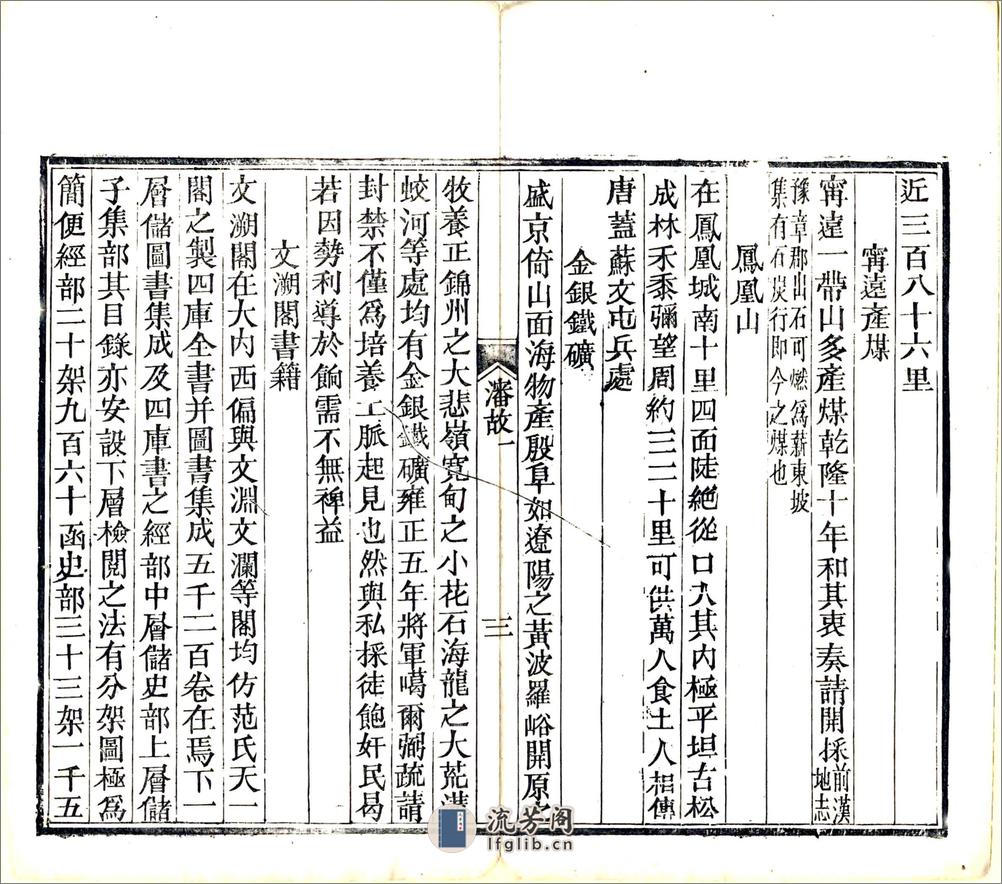 近三百八十六里
甯遠產煤
甯遠一帶山多產煤乾隆十年和其衷奏請開採前漢地志
豫章郡出石可燃爲薪東坡
集有石炭行即今之煤也
鳳凰山
在鳳凰城南十里四面陡絕從口入其內極平坦古松
成林禾黍彌望周約三二十里可供萬人食土人相傳
唐蓋蘇文屯兵處
金銀鐵礦
盛京倚山面海物產殷阜如遼陽之黃波羅峪開原之
瀋故一
三
牧養正錦州之大悲嶺寬甸之小花石海龍之大荒溝
蛟河等處均有金銀鐵礦雍正五年將軍噶爾弼疏請
封禁不僅爲培養土脈起見也然與私採徒飽奸民曷
若因勢利導於餉需不無裨益
文溯閣書籍
文溯閣在大內西偏與文淵文瀾等閣均仿范氏天一
閣之製四庫全書并圖書集成五千二百卷在焉下一
層儲圖書集成及四庫書之經部中層儲史部上層儲
子集部其目錄亦安設下層檢閱之法有分架圖極爲
簡便經部二十架九百六十函史部三十三架一千五
流芳閣
lfglib.cn